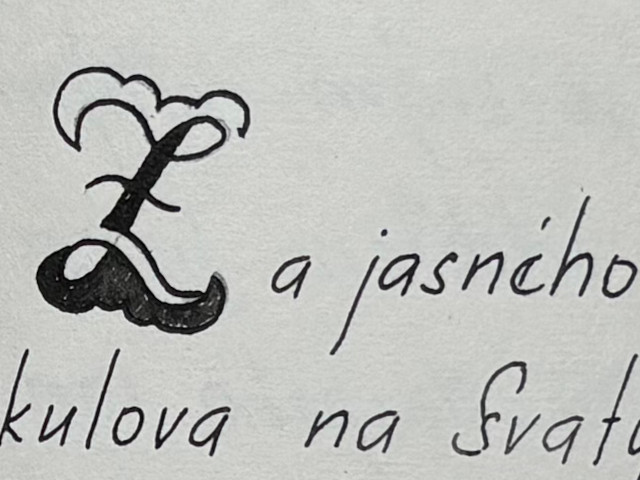 Za jasného
kulova na Svatý